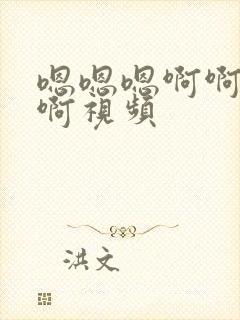 嗯嗯嗯啊啊
啊視頻
洪文